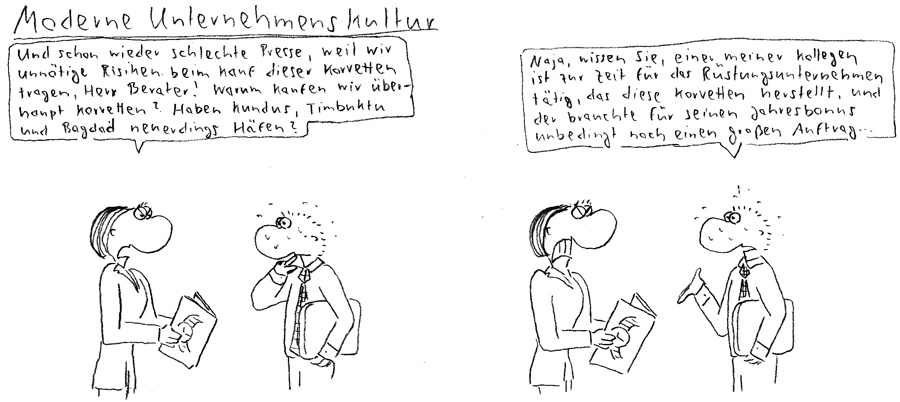 Moderne Unternehmenskultur
Und schon wieder schlechte Presse, weil wir
unnötige Risiken beim Kauf dieser Korvetten
tragen, Herr Berater! Warum kaufen wir über-
haupt Korvetten? Haben Kundus, Timbuktu
und Bagdad neuerdings Häfen?
Naja, wissen Sie, einer meiner Kollegen
ist zur Zeit für das Rüstungsunternehmen
tätig, das diese Korvetten herstellt, und
der brauchte für seinen Jahresbonus
unbedingt noch einen großen Auftrag...